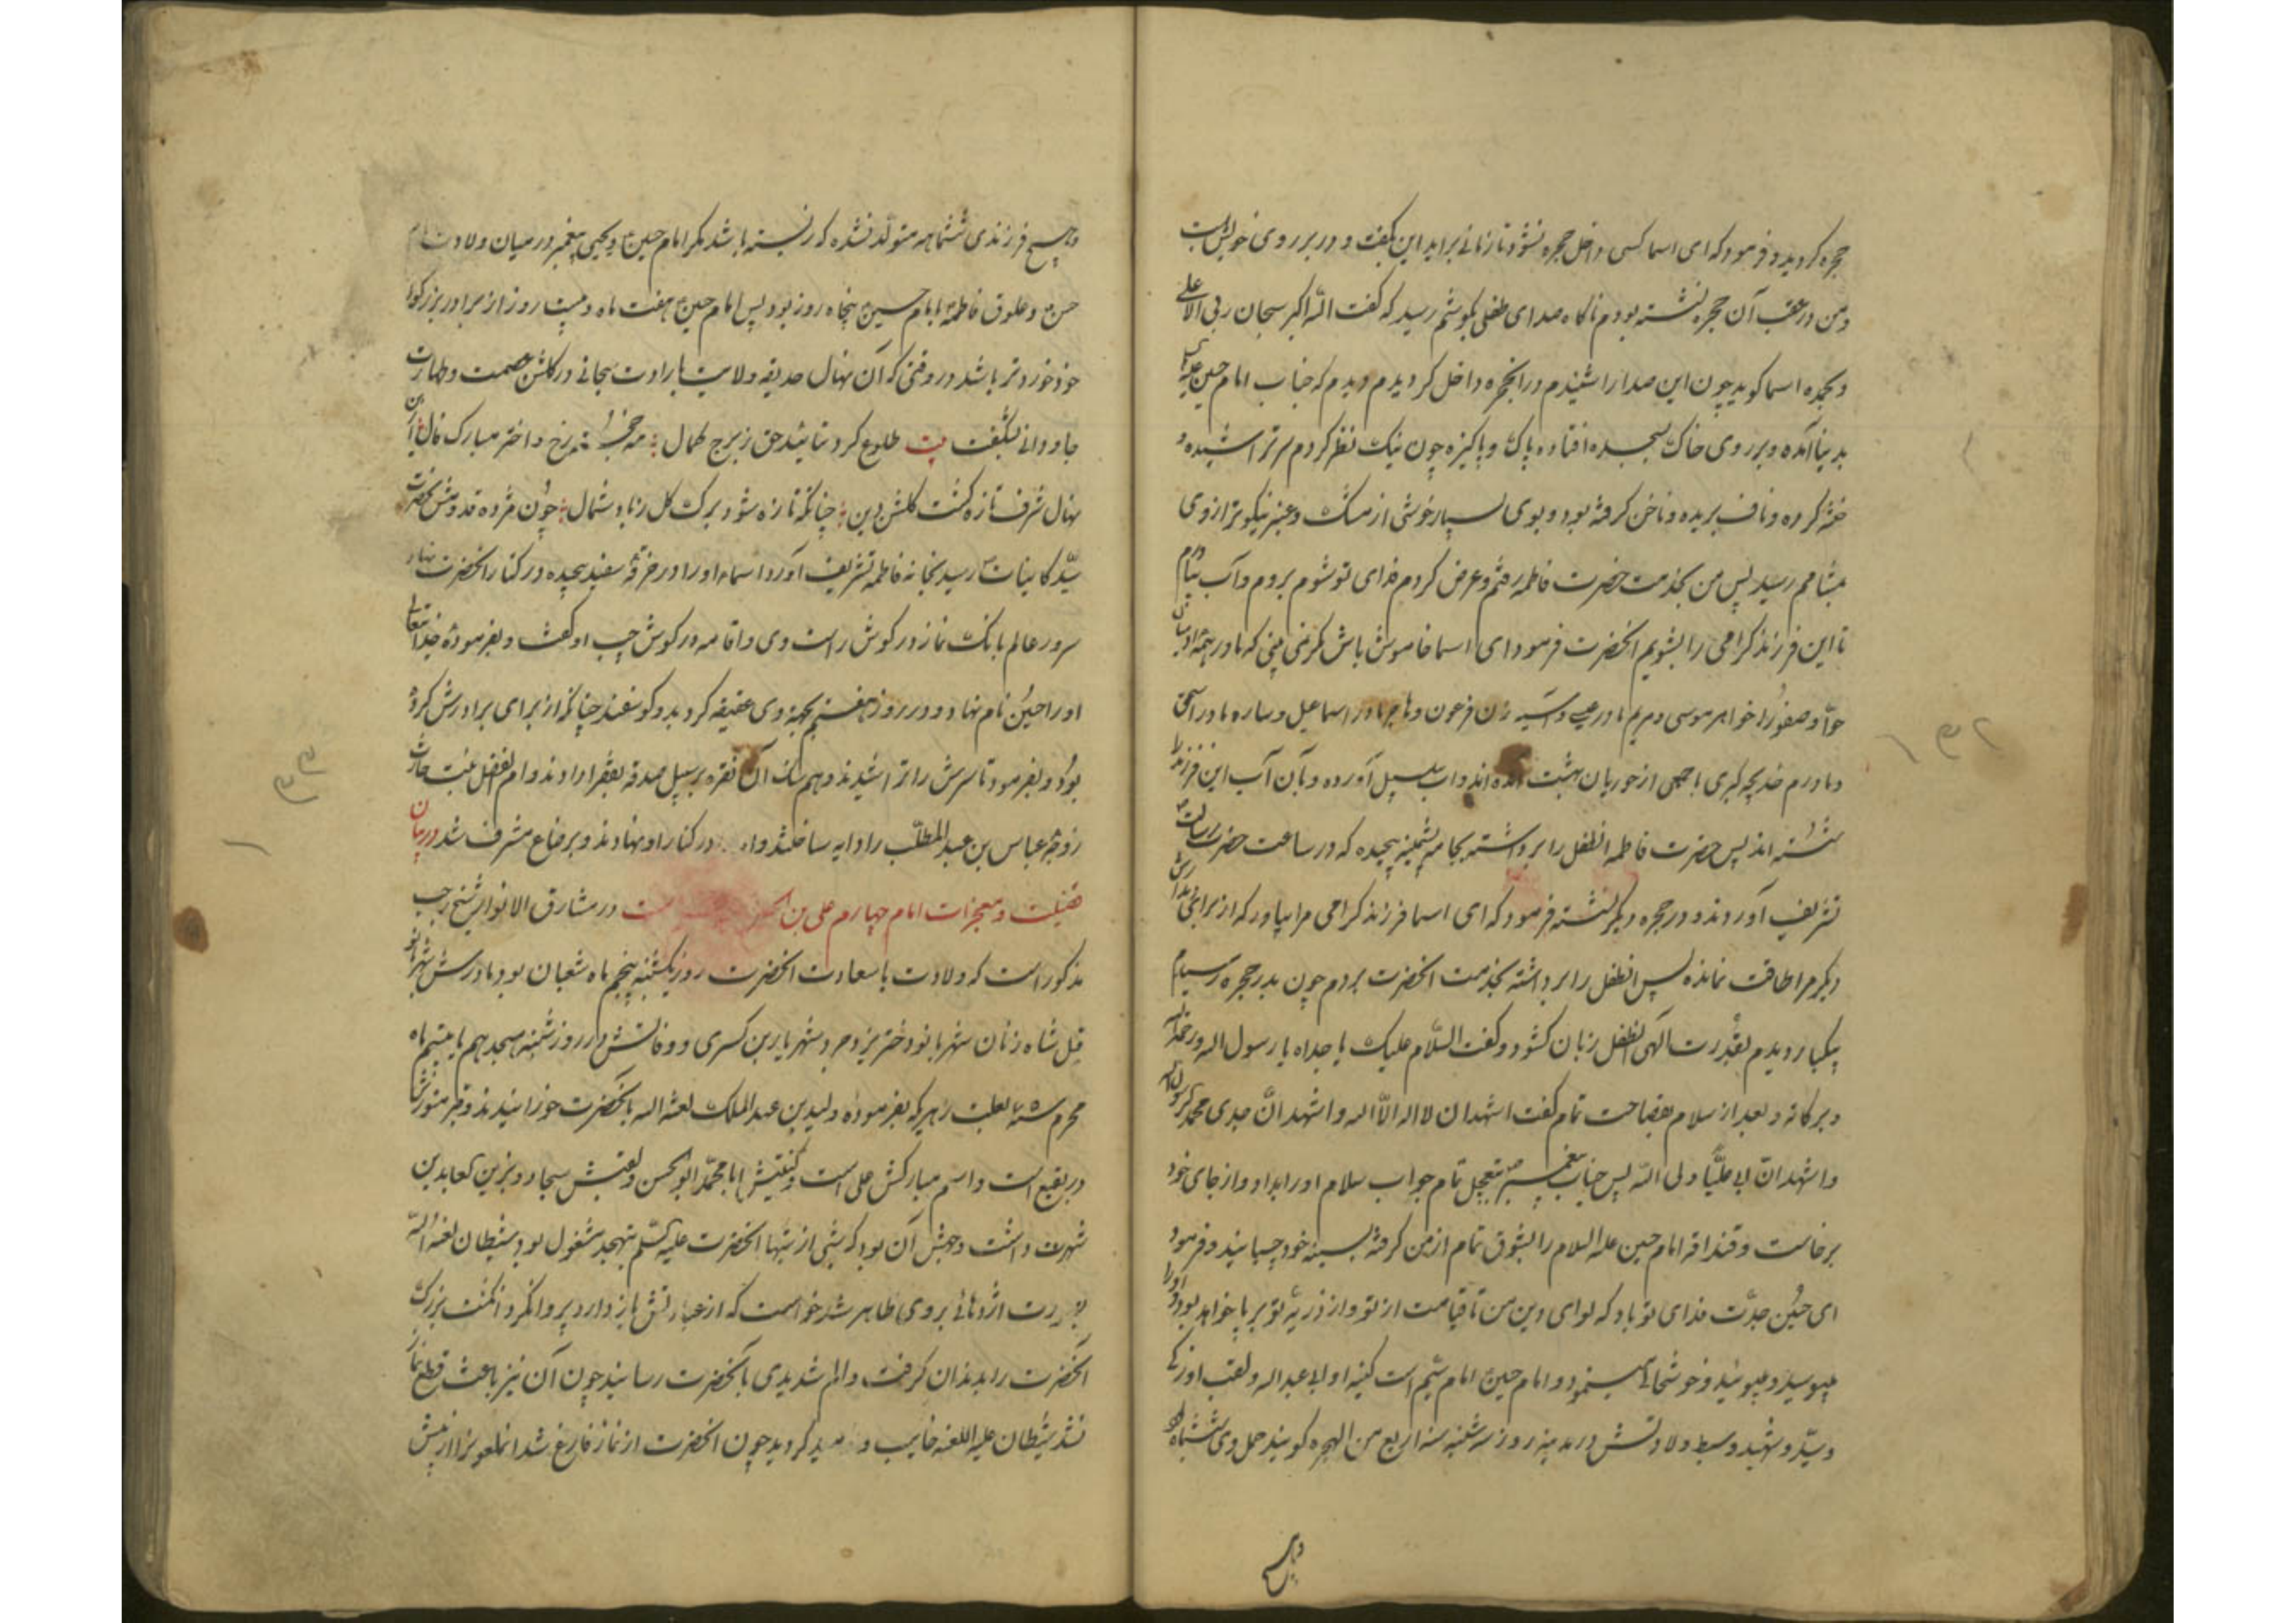 حجره کردید و فرمود که ای اسما کسی داخل حجره نشود تا زمانی براید این بگفت و در بر روی خویش بست
و من در عقب آن حجره نشسته بودم ناکاه صدای طفلی بگوشم رسید که گفت الله اکبر سبحان ربی الاعلی
و بحمده اسما گوید چون این صدا را شنیدم در انحجره داخل کردیدم دیدم که جناب امام حسین علیه
بدنیا آمده و بر روی خاک بسجده افتاده پاک و پاکیزه چون نیک نظر کردم سر تراشیده و
ختنه کرده و ناف بریده و ناخن کرفته بود و بوی بسیار خوشی از مشک و عنبر نیکوتر از وی
بمشامم رسید پس من بخدمت حضرت فاطمه رفتم و عرض کردم فدای تو شوم بروم و آب بیاورم
تا این فرزند کرامی را بشویم انحضرت فرمود ای اسما خاموش باش مگر نمی بینی که مادر همه ادمیان
حوّا و صفورا خواهر موسی و مریم مادر عیسی و آسیه زن فرعون و هاجر مادر اسماعیل و ساره مادر اسحق
و مادرم خدیجه کبری با جمعی از حوریان بهشت آمده اند و اب سلسبیل آورده و بآن آب این فرزند را
شسته اند پس حضرت فاطمه انطفل را برداشته بجامه پشمینه پیچیده که در ساعت حضرت رسالت
تشریف آوردند و در حجره دیگر نشسته فرمود که ای اسما فرزند کرامی مرا بیاور که از برای دیدارش
دیگر مرا طاقت نمانده پس انطفل را برداشته بخدمت انحضرت بردم چون بدر حجره رسیدم
بیکبار دیدم بقدرت الهی انطفل زبان کشود و کفت السّلام علیک یا جداه یا رسول الله و رحمةالله
و برکاته و بعد از سلام بفصاحت تمام کفت اشهد ان لا اله الّا الله و اشهد انّ جدی محمد رسول الله
و اشهد انّ ابی علیًّا ولی الله پس جناب پیغمبر بتعجیل تمام جواب سلام او را بداد و از جای خود
برخاست و قنداقه امام حسین علیه السلام را بشوق تمام از من کرفته بسینه خود چسبانید و فرمود
ای حسین جدّت فدای تو باد که لوای دین من تا قیامت از تو و از ذریّه تو بر پا خواهد بود و او را
میبوسید و میبوئید و خوشحالی مینمود و امام حسین امام سیم است کنیه او ابی عبدالله و لقب او زکی
و سیّد و شهید و سبط ولادتش در مدینه روز سه شنبه سنه اربع من الهجره کویند حمل وی ششماه بود
و هیچ
و هیچ فرزندی ششماهه متولّد نشده که زیسته باشد مکر امام حسین و یحیی پیغمبر در میان ولادت امام
حسن و علوق فاطمه بامام حسین پنجاه روز بود پس امام حسین هفت ماه و بیست روز از برادر بزرکوار
خود خوردتر باشد در وقتی که آن نهال حدیقه ولایت بارادت سبحانی در کلشن عصمت و طهارت
جاودانی بشگفت بیت طلوع کرد بتائید حق ز برج کمال مه رخ و اختر مبارک فال از ان
نهال شرف تازه کشت کلشن دین چنانکه تازه شود برک کل ز باد شمال چون مژده قدومش بحضرت
سیّد کاینات رسید بخانه فاطمه تشریف آورد اسماء او را در خرقه سفید پیچیده در کنار انحضرت نهاد
سرور عالم بانک نماز در کوش راست وی و اقامه در کوش چپ او کفت و بفرموده خدایتعالی
او را حسین نام نهاد و در روز هفتم بجهة وی عقیقه کرد بدو کوسفند چنانکه از برای برادرش کرده
بود و بفرمود تا سرش را تراشیدند و هم سنک آن نقره بر سبیل صدقه بفقرا دادند و ام الفضل بنت حارث
زوجه عباس بن عبد المطلّب را دایه ساختند و در کنار او نهادند و برضاع مشرف شد در بیان
فضیلت و معجزات امام چهارم علی بن است در مشارق الانوار شیخ رجب
مذکور است که ولادت با سعادت انحضرت روز یکشنبه پنجم ماه شعبان بود مادرش شهربانو
قیل شاه زنان شهربانو دختر یزدجرد شهریار بن کسری و وفاتش در روز شنبه هیجدهم یا بیستم ماه
محرم سنه بعلت زهر که بفرموده ولید بن عبد الملک لعنه الله بانحضرت خورانیدند و قبر منورش
در بقیع است و اسم مبارکش علی است و کنیتش ابا محمّد ابو الحسن و لقبش سجاد و بزین العابدین
شهرت داشت وجهش آن بود که شبی از شبها انحضرت علیه السّلم بتهجد مشغول بود شیطان لعنه الله
بصورت اژدهائی بر وی ظاهر شد خواست که از عبادتش باز دارد پروا نکرد انکشت بزرک
انحضرت را بدندان کرفت و الم شدیدی بانحضرت رسانید چون آن نیز باعث قطع نماز
نشد شیطان علیه اللعنه خایب و کردید چون انحضرت از نماز فارغ شد انملعون را از پیش